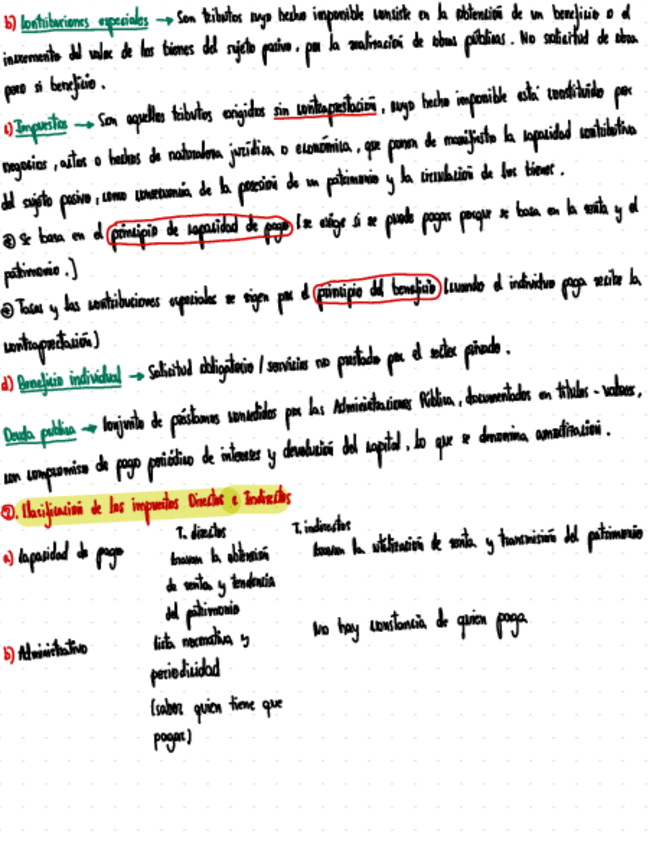 b) Contribuciones especiales → Son tributos cuyo hecho imponible consiste en la obtención de un beneficio o el
incremento del valor de los bienes del sujeto pasivo, por la realización de obras públicas. No solicitud de obra
pero si beneficio.
c) Impuestos → Son aquellos tributos exigidos sin contraprestación, cuyo hecho imponible está constituido por
negocios, actos o hechos de naturaleza jurídica o económica, que ponen de manifiesto la capacidad contributiva
del sujeto pasivo, como consecuencia de la posesión de un patrimonio y la circulación de los bienes.
Se basa en el principio de capacidad de pago (se exige si se puede pagar porque se basa en la renta y el
patrimonio.)
Tasas y las contribuciones especiales se rigen por el principio del beneficio (cuando el individuo paga recibe la
contraprestación)
d) Beneficio individual → Solicitud obligatorio / servicios no prestado por el sector privado.
Deuda publica → Conjunto de préstamos concedidos por las Administraciones Pública, documentados en títulos-valores,
con compromiso de pago periódico de intereses y devolución del capital, lo que se denomina amortización.
②. Clasificación de los impuestos Directos e Indirectos
T. directos T. indirectos
a) Capacidad de pago gravan la obtención gravan la utilización de renta y transmisión del patrimonio
de renta y tendencia
del patrimonio
b) Administrativo lista normativa y No hay constancia de quien paga
periodicidad
(saber quien tiene que
pagar)